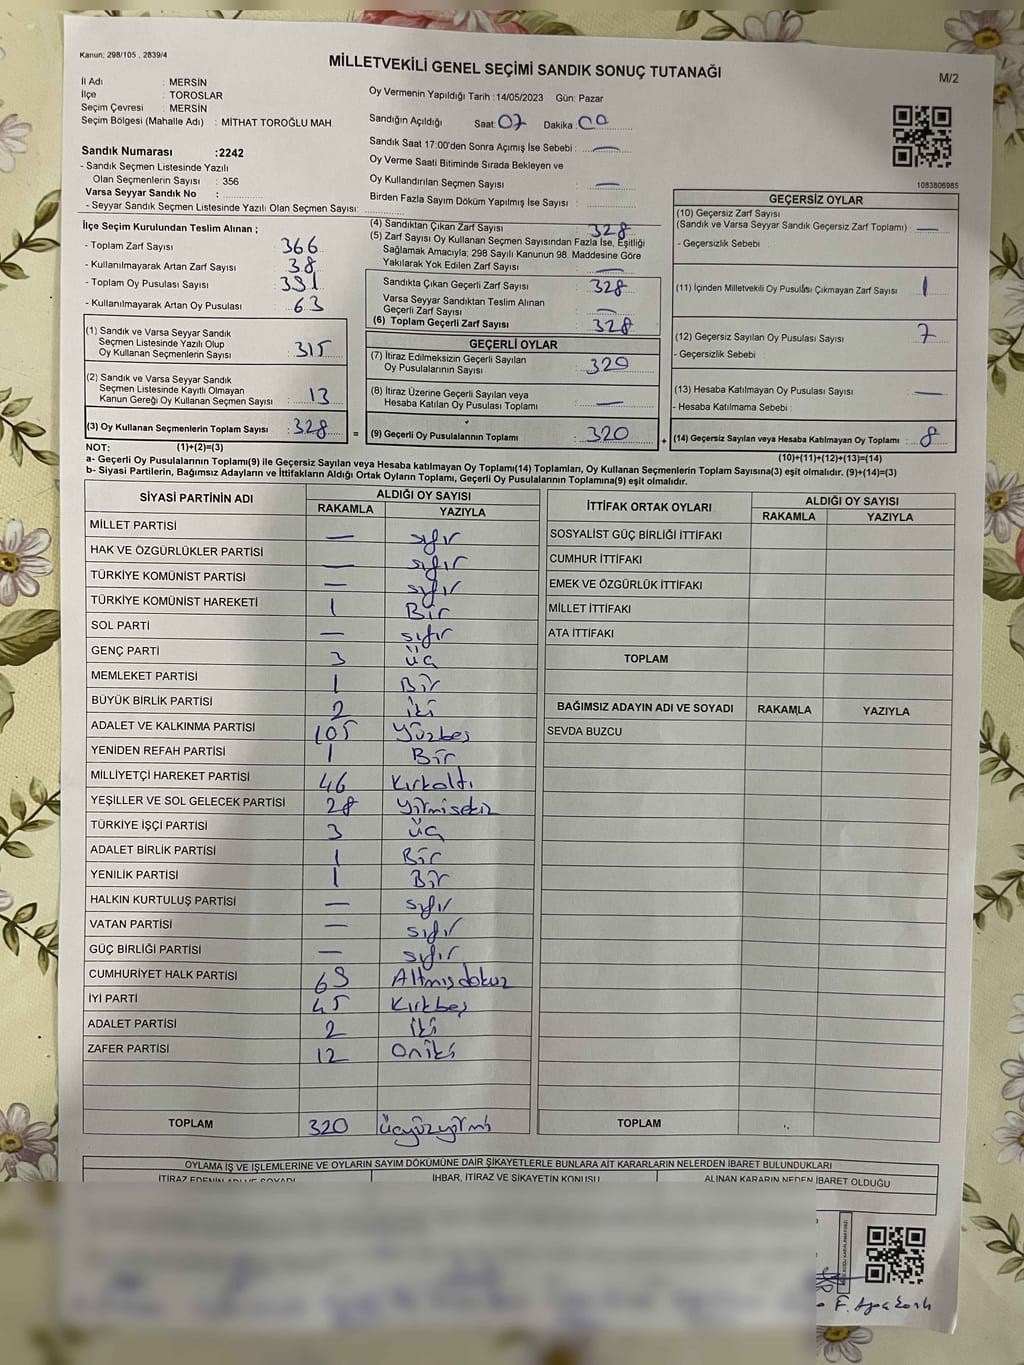 Kanun; 298/105 , 2839/4
MİLLETVEKİLİ GENEL SEÇİMİ SANDIK SONUÇ TUTANAĞI
M/2
İl Adı : MERSİN
İlçe : TOROSLAR
Seçim Çevresi : MERSİN
Seçim Bölgesi (Mahalle Adı) : MİTHAT TOROĞLU MAH.
Sandık Numarası :2242
- Sandık Seçmen Listesinde Yazılı
Olan Seçmenlerin Sayısı : 356
Varsa Seyyar Sandık No :
- Seyyar Sandık Seçmen Listesinde Yazılı Olan Seçmen Sayısı:
Oy Vermenin Yapıldığı Tarih :14/05/2023 Gün: Pazar
Sandığın Açıldığı Saat: 07 Dakika : 00
Sandık Saat 17:00'den Sonra Açımış İse Sebebi : —
Oy Verme Saati Bitiminde Sırada Bekleyen ve
Oy Kullandırılan Seçmen Sayısı : —
Birden Fazla Sayım Döküm Yapılmış İse Sayısı : —
1083806985
İlçe Seçim Kurulundan Teslim Alınan ;
- Toplam Zarf Sayısı : 366
- Kullanılmayarak Artan Zarf Sayısı : 38
- Toplam Oy Pusulası Sayısı : 391
- Kullanılmayarak Artan Oy Pusulası : 63
(1) Sandık ve Varsa Seyyar Sandık
Seçmen Listesinde Yazılı Olup
Oy Kullanan Seçmenlerin Sayısı : 315
(2) Sandık ve Varsa Seyyar Sandık
Seçmen Listesinde Kayıtlı Olmayan
Kanun Gereği Oy Kullanan Seçmen Sayısı : 13
(3) Oy Kullanan Seçmenlerin Toplam Sayısı : 328
(4) Sandıktan Çıkan Zarf Sayısı : 328
(5) Zarf Sayısı Oy Kullanan Seçmen Sayısından Fazla İse, Eşitliği
Sağlamak Amacıyla; 298 Sayılı Kanunun 98. Maddesine Göre
Yakılarak Yok Edilen Zarf Sayısı : —
Sandıkta Çıkan Geçerli Zarf Sayısı : 328
Varsa Seyyar Sandıktan Teslim Alınan
Geçerli Zarf Sayısı : —
(6) Toplam Geçerli Zarf Sayısı : 328
GEÇERLİ OYLAR
(7) İtiraz Edilmeksizin Geçerli Sayılan
Oy Pusulalarının Sayısı : 320
(8) İtiraz Üzerine Geçerli Sayılan veya
Hesaba Katılan Oy Pusulası Toplamı : —
= (9) Geçerli Oy Pusulalarının Toplamı : 320
GEÇERSİZ OYLAR
(10) Geçersiz Zarf Sayısı
(Sandık ve Varsa Seyyar Sandık Geçersiz Zarf Toplamı) : —
- Geçersizlik Sebebi :
(11) İçinden Milletvekili Oy Pusulası Çıkmayan Zarf Sayısı : 1
(12) Geçersiz Sayılan Oy Pusulası Sayısı : 7
- Geçersizlik Sebebi :
(13) Hesaba Katılmayan Oy Pusulası Sayısı : —
- Hesaba Katılmama Sebebi :
+ (14) Geçersiz Sayılan veya Hesaba Katılmayan Oy Toplamı : 8
NOT: (1)+(2)=(3)
(10)+(11)+(12)+(13)=(14)
a- Geçerli Oy Pusulalarının Toplamı(9) ile Geçersiz Sayılan veya Hesaba katılmayan Oy Toplamı(14) Toplamları, Oy Kullanan Seçmenlerin Toplam Sayısına(3) eşit olmalıdır. (9)+(14)=(3)
b- Siyasi Partilerin, Bağımsız Adayların ve İttifakların Aldığı Ortak Oyların Toplamı, Geçerli Oy Pusulalarının Toplamına(9) eşit olmalıdır.
SİYASİ PARTİNİN ADI ALDIĞI OY SAYISI
RAKAMLA YAZIYLA
MİLLET PARTİSİ — sıfır
HAK VE ÖZGÜRLÜKLER PARTİSİ — sıfır
TÜRKİYE KOMÜNİST PARTİSİ — sıfır
TÜRKİYE KOMÜNİST HAREKETİ 1 Bir
SOL PARTİ — sıfır
GENÇ PARTİ 3 üç
MEMLEKET PARTİSİ 1 Bir
BÜYÜK BİRLİK PARTİSİ 2 iki
ADALET VE KALKINMA PARTİSİ 105 Yüzbeş
YENİDEN REFAH PARTİSİ 1 Bir
MİLLİYETÇİ HAREKET PARTİSİ 46 Kırkaltı
YEŞİLLER VE SOL GELECEK PARTİSİ 28 Yirmisekiz
TÜRKİYE İŞÇİ PARTİSİ 3 üç
ADALET BİRLİK PARTİSİ 1 Bir
YENİLİK PARTİSİ 1 Bir
HALKIN KURTULUŞ PARTİSİ — sıfır
VATAN PARTİSİ — sıfır
GÜÇ BİRLİĞİ PARTİSİ — sıfır
CUMHURİYET HALK PARTİSİ 69 Altmışdokuz
İYİ PARTİ 45 Kırkbeş
ADALET PARTİSİ 2 iki
ZAFER PARTİSİ 12 Oniki
TOPLAM 320 üçyüzyirmi
İTTİFAK ORTAK OYLARI ALDIĞI OY SAYISI
RAKAMLA YAZIYLA
SOSYALİST GÜÇ BİRLİĞİ İTTİFAKI
CUMHUR İTTİFAKI
EMEK VE ÖZGÜRLÜK İTTİFAKI
MİLLET İTTİFAKI
ATA İTTİFAKI
TOPLAM
BAĞIMSIZ ADAYIN ADI VE SOYADI RAKAMLA YAZIYLA
SEVDA BUZCU
TOPLAM
OYLAMA İŞ VE İŞLEMLERİNE VE OYLARIN SAYIM DÖKÜMÜNE DAİR ŞİKAYETLERLE BUNLARA AİT KARARLARIN NELERDEN İBARET BULUNDUKLARI
İTİRAZ EDENİN ADI VE SOYADI İHBAR, İTİRAZ VE ŞİKAYETİN KONUSU ALINAN KARARIN NEDEN İBARET OLDUĞU